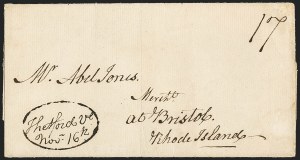 17
Mr. Abel Jones.
Mercht.
at Bristol
Rhode Island
Thetford Vt
Nov. 16th